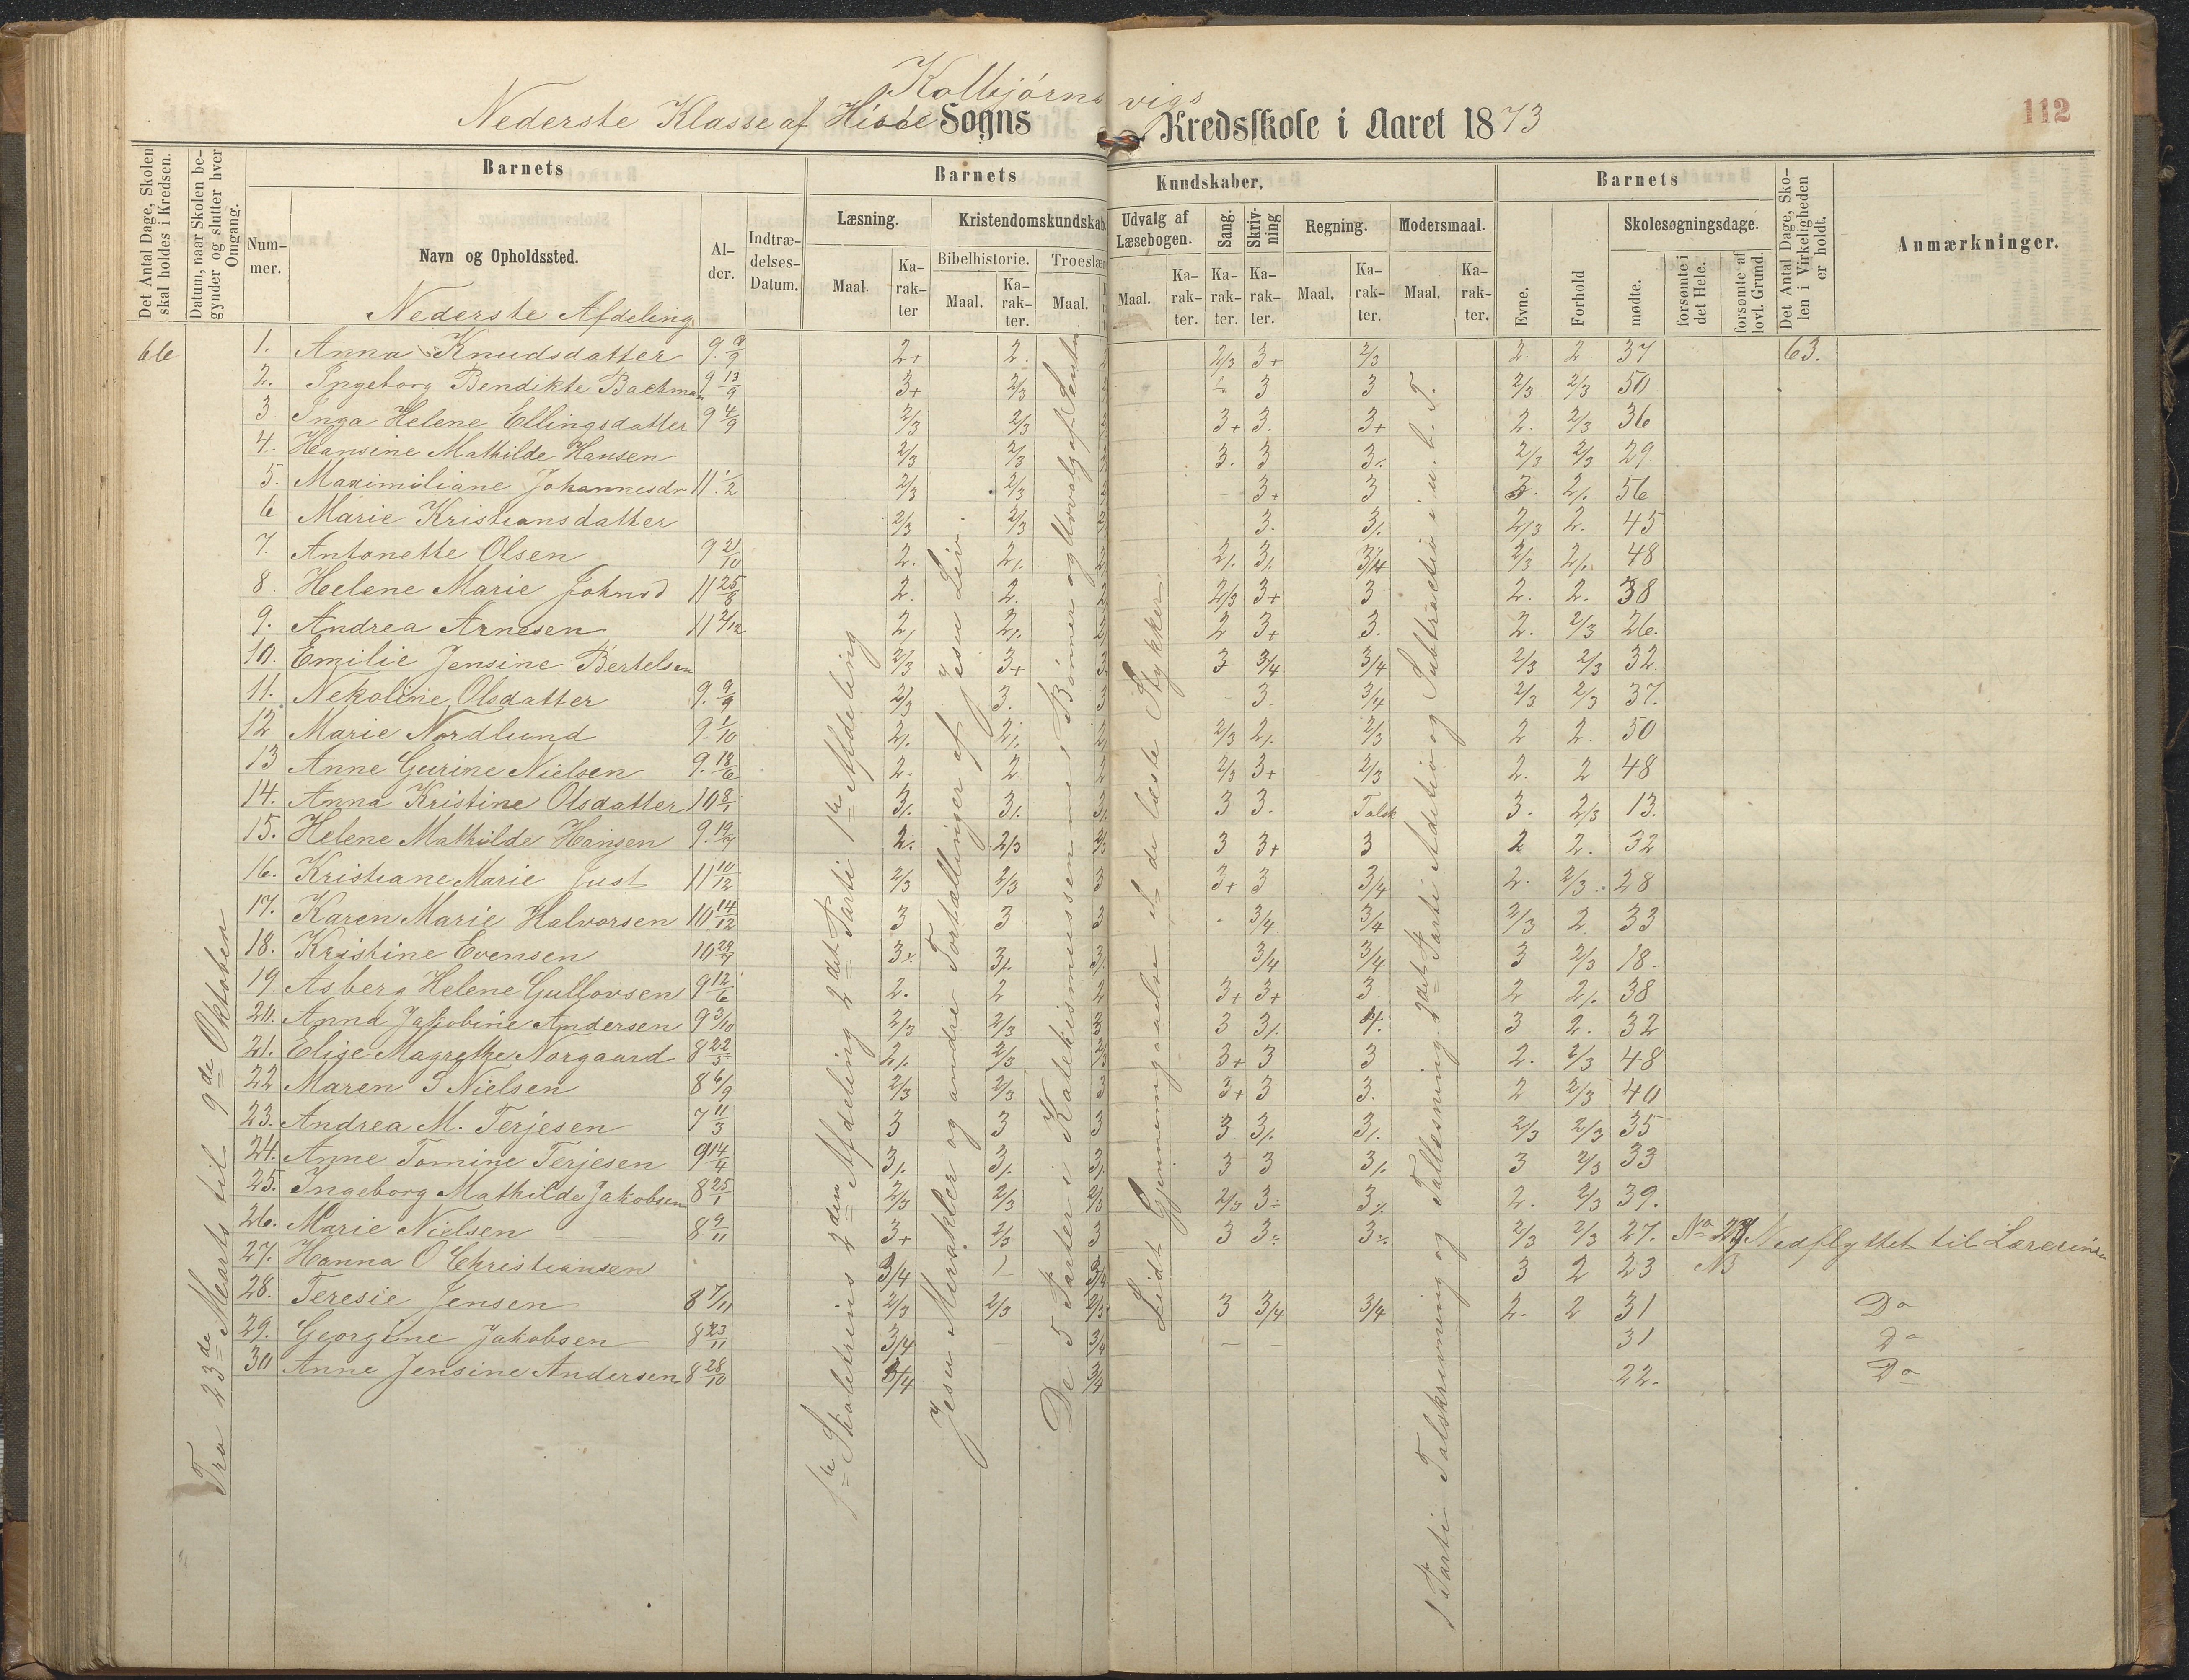 Kolbjørnsvigs
Nederste Klasse af Hisøe Sogns Kredsskole i Aaret 1873
112
Det Antal Dage, Skolen skal holdes i Kredsen.
Datum, naar Skolen begynder og slutter hver Omgang.
Barnets
Nummer.
Navn og Opholdssted.
Alder.
Indtrædelses-Datum.
Barnets Kundskaber.
Læsning.
Maal.
Karakter
Kristendomskundskab.
Bibelhistorie.
Maal.
Karakter.
Troeslære
Maal.
Udvalg af Læsebogen.
Maal.
Karakter.
Sang.
Karakter.
Skrivning
Karakter.
Regning.
Maal.
Karakter.
Modersmaal.
Maal.
Karakter.
Barnets
Evne.
Forhold
Skolesøgningsdage.
mødte.
forsømte i det Hele.
forsømte af lovl. Grund.
Det Antal Dage, Skolen i Virkeligheden er holdt.
Anmærkninger.
Nederste Afdeling
66 1. Anna Knudsdatter 2+ 2. 2/3 3+ 2/3 2. 2. 37 63.
2. Ingeborg Bendikte Bachman 9 13/9 3+ 2/3 3 3 2/3 2/3 50
3. Inga Helene Ellingsdatter 9 4/9 2/3 2/3 3+ 3. 3+ 2. 2/3 36
4. Hansine Mathilde Hansen 2/3 2/3 3. 3 3. 2/3 2/3 29
5. Maximiliane Johannesdr 11 1/2 2/3 2/3 3+ 3 3. 2. 56
6 Marie Kristiansdatter 2/3 2/3 3. 3. 2/3 2. 45
7. Antonette Olsen 9 21/10 2. 2. 2. 3. 3/4 2/3 2. 48
8. Helene Marie Johnsd 11 25/8 2. 2. 2/3 3+ 3 2. 2. 38
9. Andrea Arnesen 11 2/12 2. 2. 2 3+ 3. 2. 2/3 26.
10. Emilie Jensine Bertelsen 2/3 3+ 3 3/4 3/4 2/3 2/3 32.
11. Nekoline Olsdatter 9. 9/9 2/3 3. 3. 3/4 2/3 2/3 37.
12 Marie Nordlund 9 1/10 2. 2. 2/3 2. 2/3 2 2. 50
13 Anne Gurine Nielsen 9. 18/6 2. 2. 2/3 3+ 2/3 2. 2 48
14. Anna Kristine Olsdatter 10 8/1 3. 3. 3 3. Talsk 3. 2/3 13.
15. Helene Mathilde Hansen 2. 2/3 2/3 3 3+ 3 2 2. 32
16. Kristiane Marie Just 11 10/12 2/3 2/3 3 3+ 3 3/4 2. 2/3 28
17. Karen Marie Halvorsen 10 14/12 3 3 3 3/4 3/4 2/3 2 33
18. Kristine Evensen 3. 3. 3. 3/4 3/4 3 2/3 18.
19. Asberg Helene Gullovsen 9 12/6 2. 2 2 3+ 3+ 3 2 2. 38
20. Anna Jakobine Andersen 9 3/10 2/3 2/3 3 3 3. 4. 3 2. 32
21. Elise Magrethe Norgaard 8 22/5 2. 2/3 2/3 3+ 3 3 2. 2/3 48
22 Maren S Nielsen 8 6/9 2/3 2/3 3 3+ 3 3. 2 2/3 40
23. Andrea M. Terjesen 7 11/3 3 3 3 3 3. 3. 2/3 2/3 35
24. Anne Tomine Terjesen 9 14/4 3. 3. 3. 3 3 3. 3 2/3 33
25. Ingeborg Mathilde Jakobsen 8 25/1 2/3 2/3 2/3 2/3 3÷ 3. 2. 2/3 39.
26. Marie Nielsen 8 9/11 3+ 2/3 3 3 3÷ 3÷ 2/3 2/3 27. Nedflyttet til Lærerinden
27. Hanna O Christiansen 3/4 3/4 3 2 23 NB
28. Teresie Jensen 8 7/11 2/3 2/3 2/3 3 3/4 3/4 2. 2 31 Do
29. Georgine Jakobsen 8 23/11 3/4 — 3/4 — — 31 Do
30 Anne Jensine Andersen 8 28/10 3/4 3/4 22. Do
Fra 23de Marts til 9de Oktober
1ste Skoletrins 2den Afdeling 2det Parti 1ste Afdeling
Jesu Mirakler og andre Fortællinger af Jesu Liv.
De 5 Parter i Katekismussen med Bønner og Udvalg af
Lidt Gjennemgaaelse i de læste Stykker
1 Parti Talskrivning og Tallæsning 2det Parti Adition og Subtraction i u. b. T.